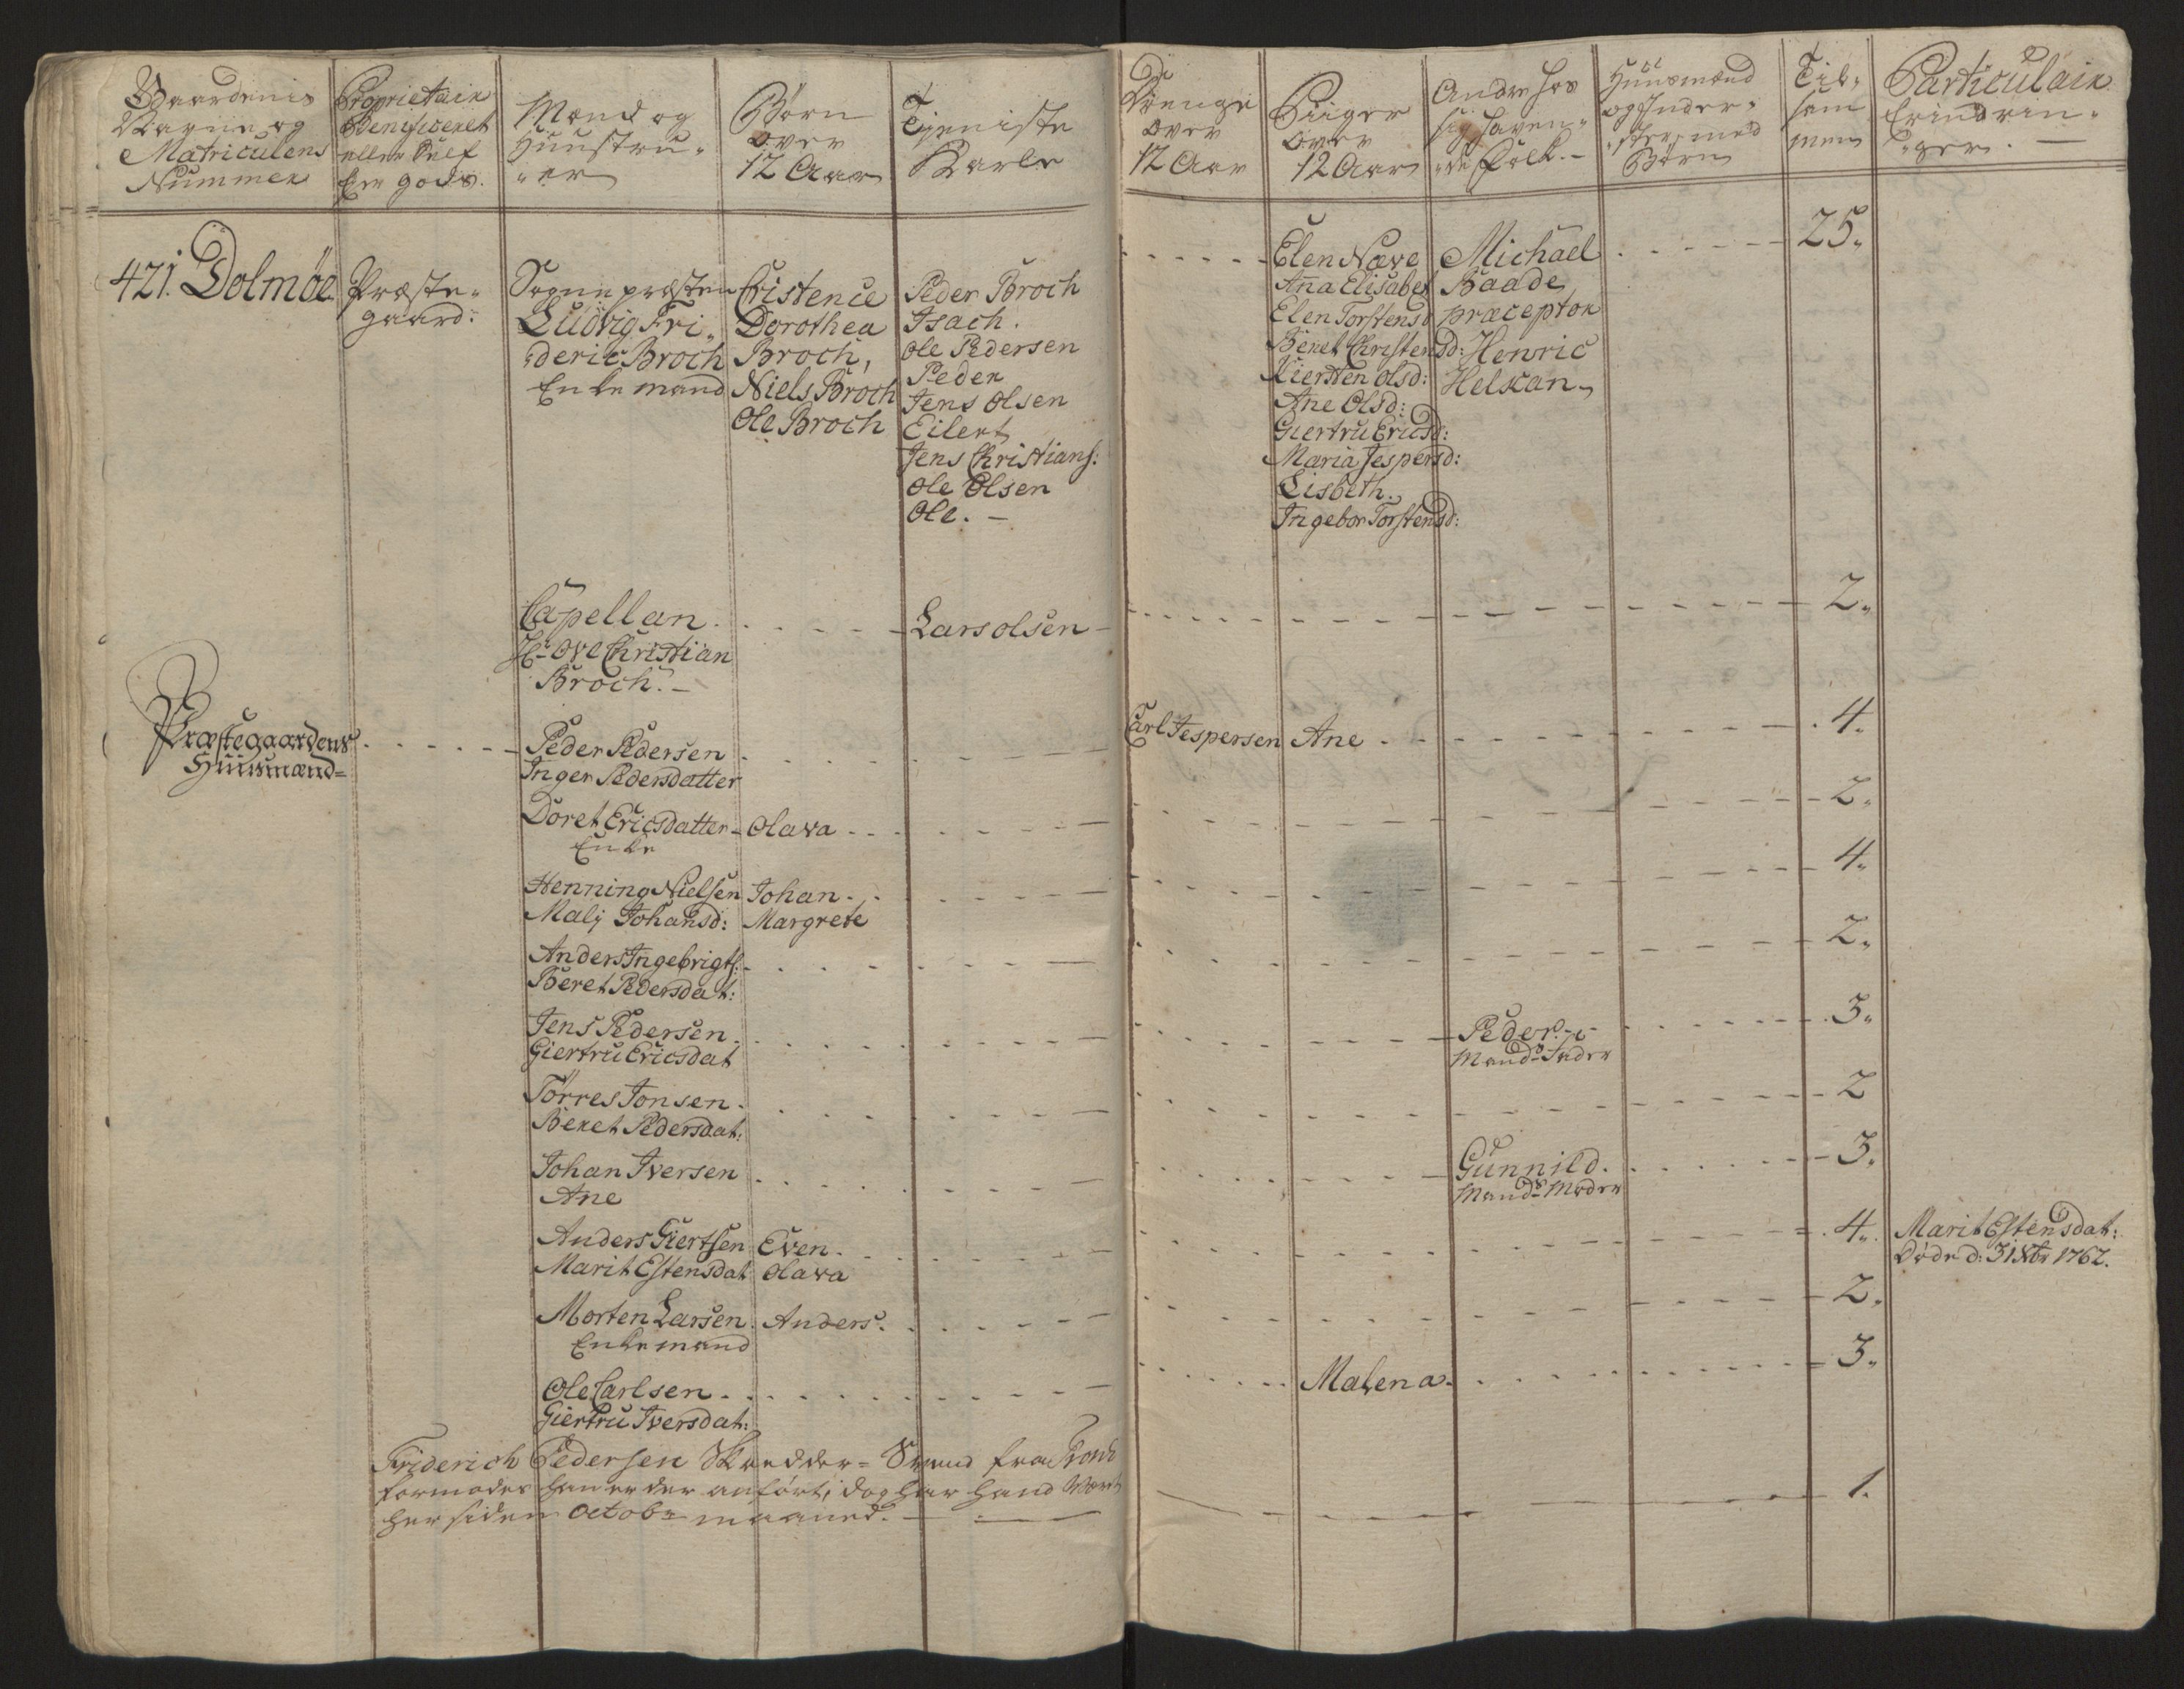 Gaardenis
Nafne og
Matriculens
Nummer
Proprietair
Beneficeret
eller Self
Eier gods.
Mænd og
Huustru-
-er
Børn
over
12 Aar
Tjeniste
Karle
Drenge
over
12 Aar
Piiger
over
12 Aar
Andre hos
sig haven-
-de folk.-
Huusmænd
og Inder-
-ster med
Børn
Til,
sam
men
Particulair
Erindrin-
-ger. -
421. Dolmöe
Præste-
gaard:
Sogne præsten
Ludvig Fri-
-deric Broch
Enke mand
Cistence
Dorothea
Broch,
Niels Broch
Ole Broch
Peder Broch
Isach.
Ole Pedersen
Peder
Jens Olsen
Eilert
Jens Christians:
Ole Olsen
Ole. -
Elen Næve
Aña Elisabet
Elen Torstensd
Beret Christensd:
Kiersten Olsd:
Ane Olsd:
Giertru Ericsd:
Maria Jespersd:
Lisbeth.
Ingebor Torstensd:
Michael
Baade
præceptor
Henric
Helkan
25.
Capellan
Hr. Ove Christian
Broch. -
Lars olsen
2.
Præstegaardens
Huusmænd=
Peder Pedersen
Inger Pedersdatter
Carl Jespersen
Ane
4.
Doret Ericsdatter
Enke
Olava
2.
Henning Nielsen
Malj Johansd:
Johan
Margrete
4.
Anders Ingebrigts:
Beret Pedersdat:
2.
Jens Pedersen
Giertru Ericsdat
Peder
Mands Fader
3.
Törres Jonsen
Beret Pedersdat:
2
Johan Iversen
Ane
Gunnild.
Mands Moder
3.
Anders Giertsen
Marit Estensdat
Even
Olava
4.
Marit Estensdat:
Døde d: 31 Xbr 1762.
Morten Larsen
Enke mand
Anders.
2.
Ole Carlsen
Giertru Iversdat:
Malena
3.
Friderich Pedersen Skredder= Svend fra Trond
formodes han er der anført, dog har hand været
her siden Octobr maaned.
1.